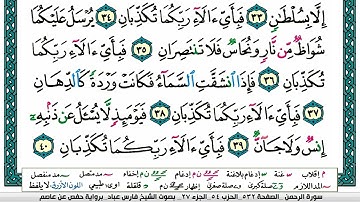 إِلَّا بِسُلْطَٰنٍ ٣٣ فَبِأَيِّ ءَالَآءِ رَبِّكُمَا تُكَذِّبَانِ ٣٤ يُرْسَلُ عَلَيْكُمَا
شُوَاظٌ مِّن نَّارٍ وَنُحَاسٌ فَلَا تَنتَصِرَانِ ٣٥ فَبِأَيِّ ءَالَآءِ رَبِّكُمَا
تُكَذِّبَانِ ٣٦ فَإِذَا ٱنشَقَّتِ ٱلسَّمَآءُ فَكَانَتْ وَرْدَةً كَٱلدِّهَانِ
٣٧ فَبِأَيِّ ءَالَآءِ رَبِّكُمَا تُكَذِّبَانِ ٣٨ فَيَوْمَئِذٍ لَّا يُسْـَٔلُ عَن ذَنۢبِهِۦٓ
إِنسٌ وَلَا جَآنٌّ ٣٩ فَبِأَيِّ ءَالَآءِ رَبِّكُمَا تُكَذِّبَانِ ٤٠
سورة الرحمن _ الصفحة ٥٣٢ _ الحزب ٥٤ _ الجزء ٢٧ _ بصوت الشيخ فارس عباد _ برواية حفص عن عاصم